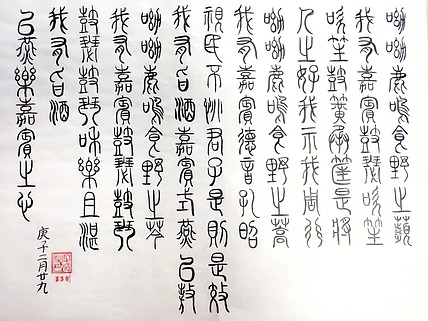 呦呦鹿鳴食野之蘋
我有嘉賓鼓瑟吹笙
吹笙鼓簧承筐是將
人之好我示我周行
呦呦鹿鳴食野之蒿
我有嘉賓德音孔昭
視民不恌君子是則是效
我有旨酒嘉賓式燕以敖
呦呦鹿鳴食野之芩
我有嘉賓鼓瑟鼓琴
鼓瑟鼓琴和樂且湛
我有旨酒
以燕樂嘉賓之心
庚子二月廿九